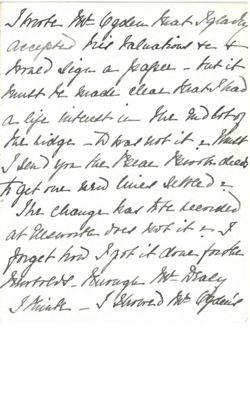 I wrote Mr Ogden that I gladly
accepted his valuations & &
would sign a paper - but it
must be made clear that I had
a life interest in the 2nd lot of
the ridge - & was not it - Must
I send you the
to get one new lines settled -
The change has to be recorded
at does not it - I
forget how I got it done for the
through Mr Dealy
I think - I showed Mr Ogden's